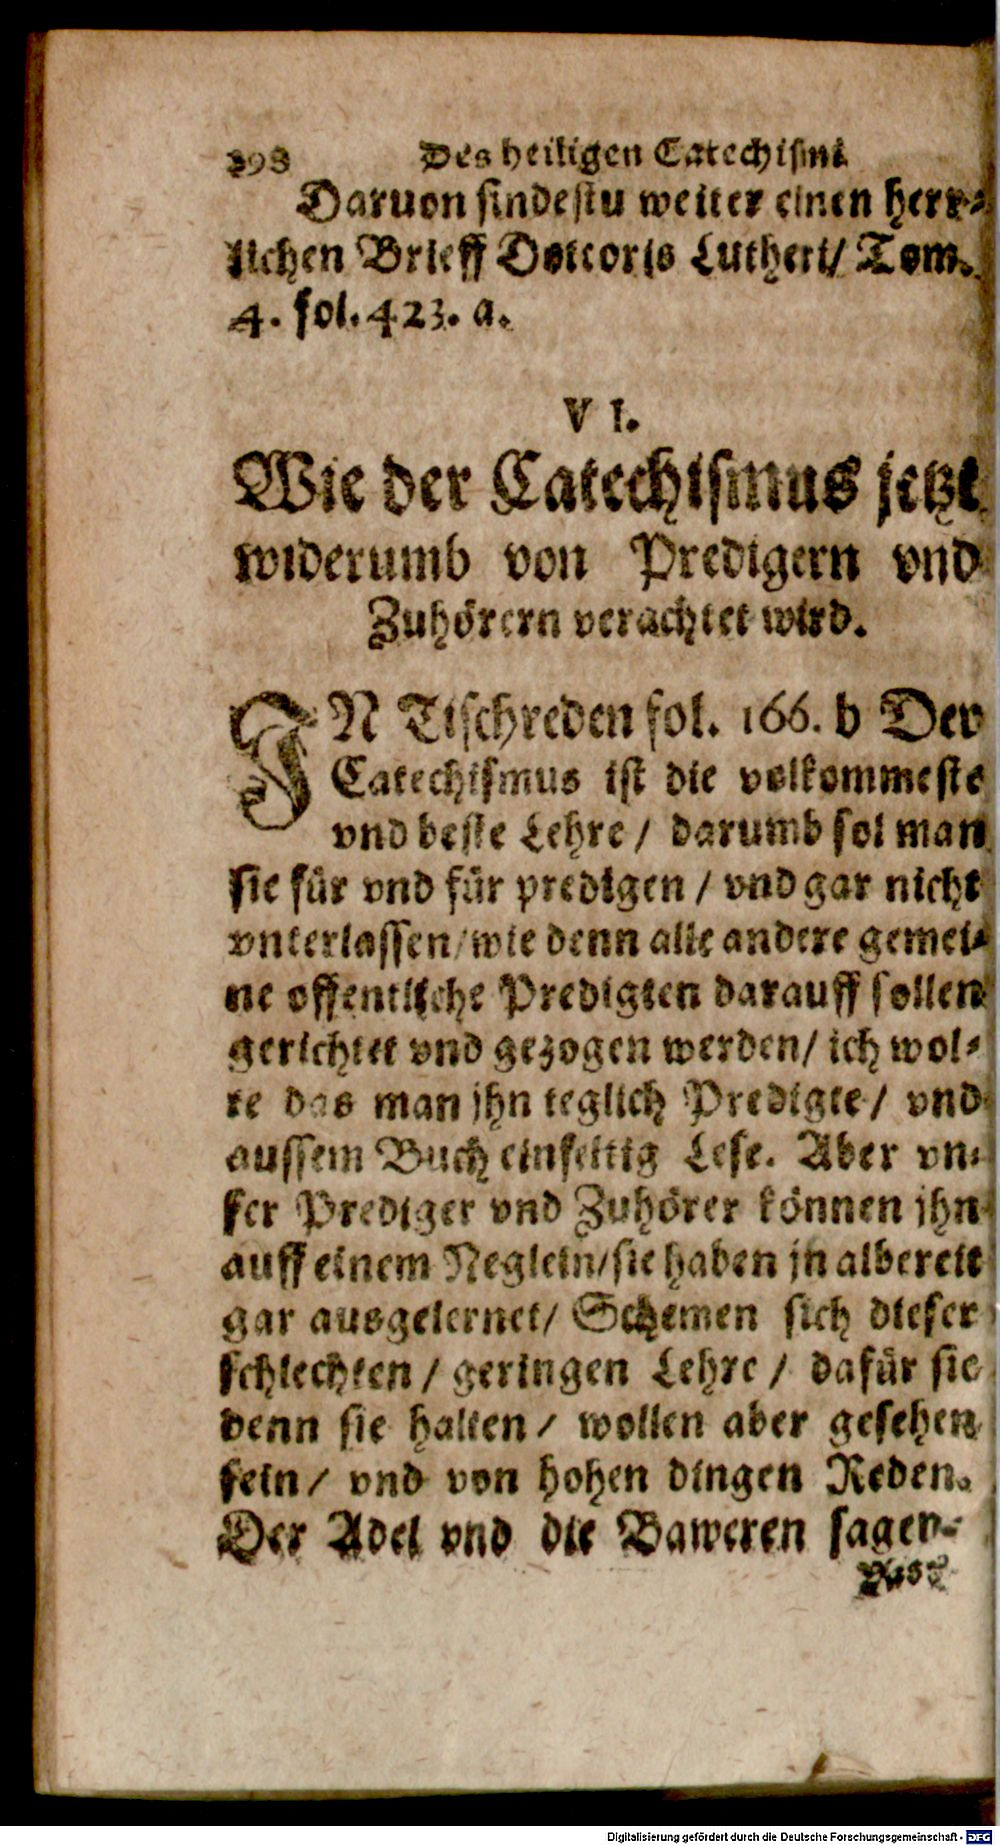 298 Des heiligen Catechismi
Daruon findestu weiter einen herr⸗
lichen Brieff Doctoris Lutheri/ Tom.
4. fol. 423. a.
VI.
Wie der Catechismus jetzt
widerumb von Predigern vnd
Zuhörern verachtet wird.
IN Tischreden fol. 166. b Der
Catechismus ist die volkommeste
vnd beste Lehre / darumb sol man
sie für vnd für predigen / vnd gar nicht
vnterlassen/ wie denn alle andere gemei⸗
ne offentliche Predigten darauff sollen
gerichtet vnd gezogen werden/ ich wol⸗
te das man jhn teglich Predigte / vnd
aussem Buch einfeltig Lese. Aber vn⸗
ser Prediger vnd Zuhörer können jhn
auff einem Neglein/ sie haben jn albereit
gar ausgelernet/ Schemen sich dieser
schlechten / geringen Lehre / dafür sie
denn sie halten / wollen aber gesehen
sein / vnd von hohen dingen Reden.
Der Adel vnd die Baweren sagen.